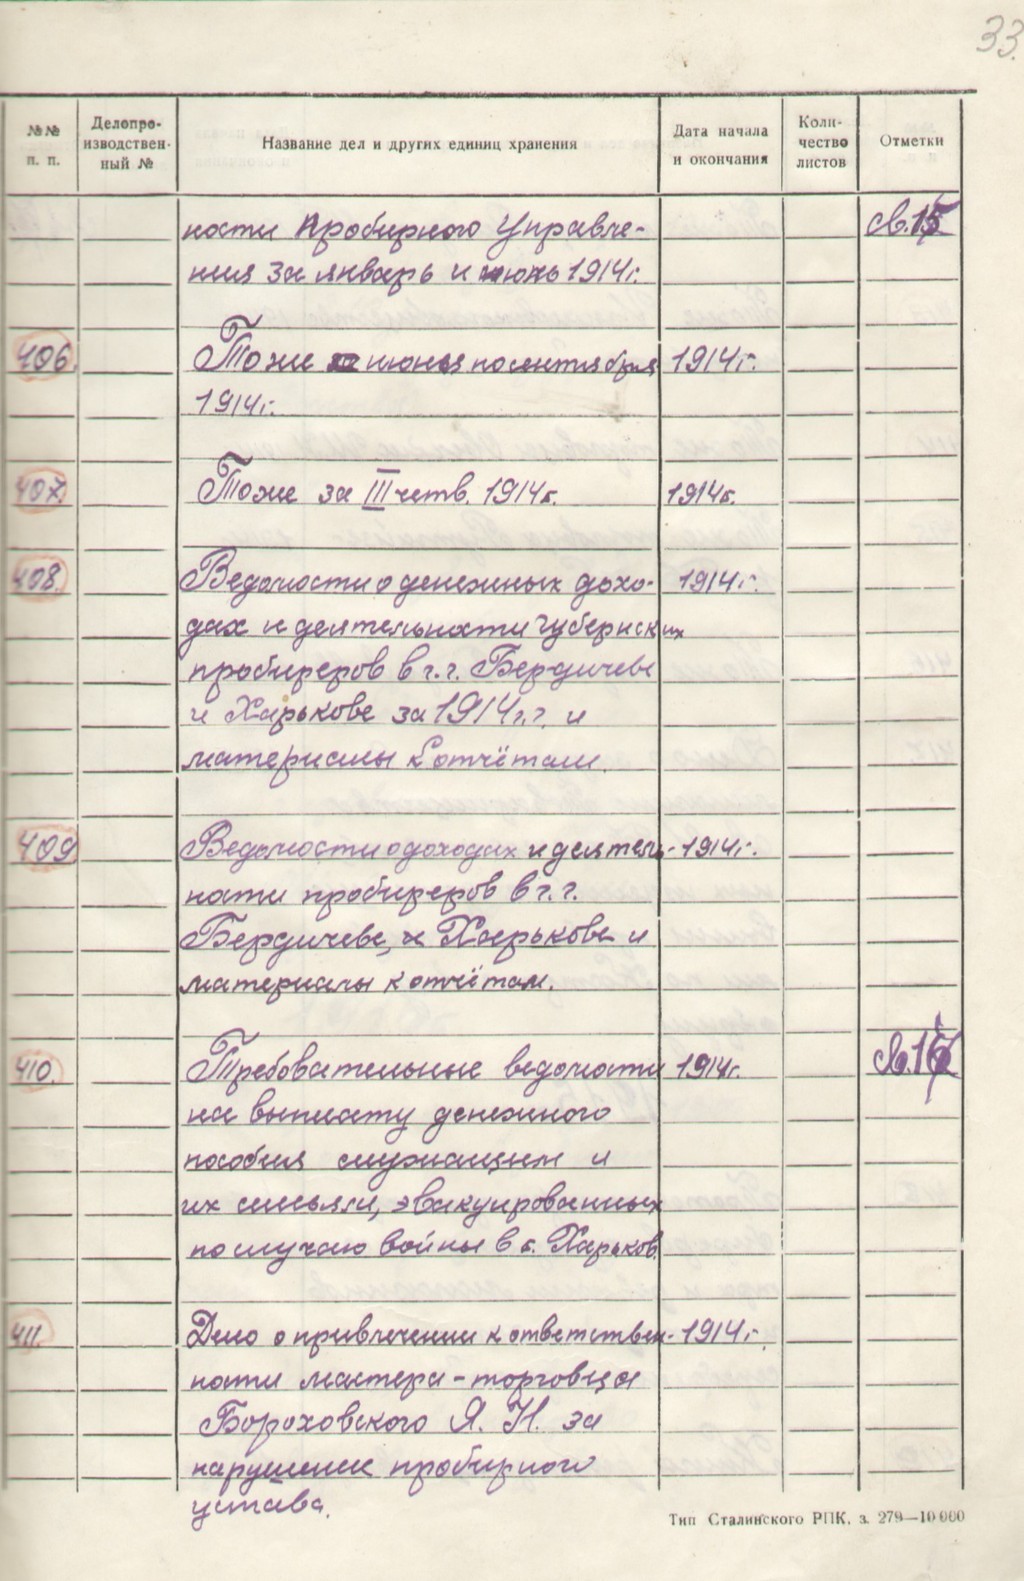 33.
№№ п. п.
Делопро-изводствен-ный №
Название дел и других единиц хранения
Дата начала и окончания
Коли-чество листов
Отметки
ности Пробирного Управле- св. 15
ния за январь и июнь 1914г.
406. Тоже июнья по сентября 1914г.
1914г.
407. Тоже за III четв. 1914г. 1914г.
408. Ведомости о денежных дохо- 1914г.
дах и деятельности губернских
пробиреров в г.г. Бердичеве
и Харькове за 1914г.г. и
материалы к отчётам.
409 Ведомости о доходах и деятель- 1914г.
ности пробиреров в г.г.
Бердичеве, и Харькове и
материалы к отчётам.
410. Требовательные ведомости 1914г. св. 16
на выплату денежного
пособия служащим и
их семьям, эвакуированных
по случаю войны в г. Харьков.
411. Дело о привлечении к ответствен- 1914г.
ности мастера-торговца
Бороховского Я. Н. за
нарушение пробирного
устава.
Тип Сталинского РПК, з. 279—10 000